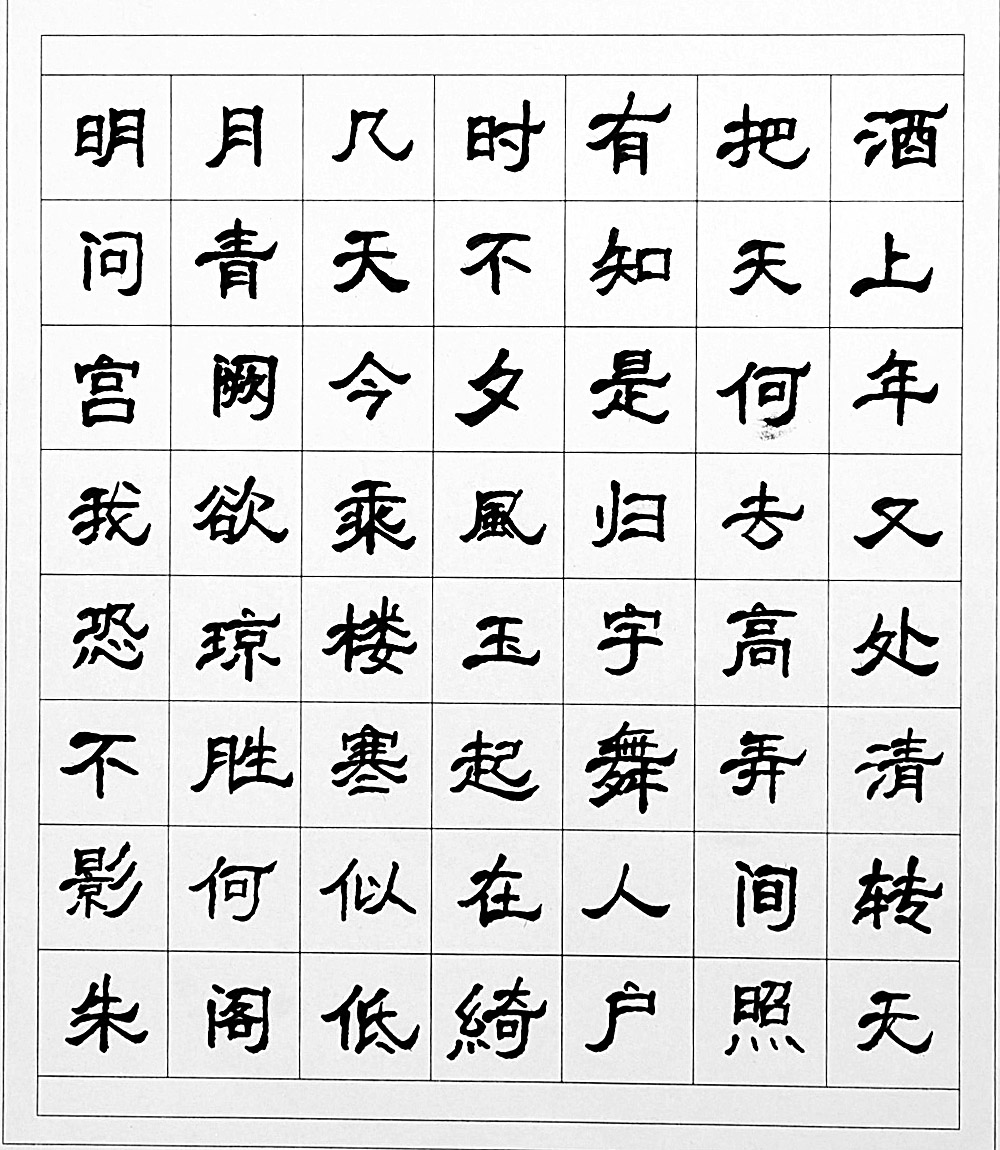 明月几时有把酒
问青天不知天上
宫阙今夕是何年
我欲乘風归去又
恐琼楼玉宇高处
不胜寒起舞弄清
影何似在人间转
朱阁低綺户照无